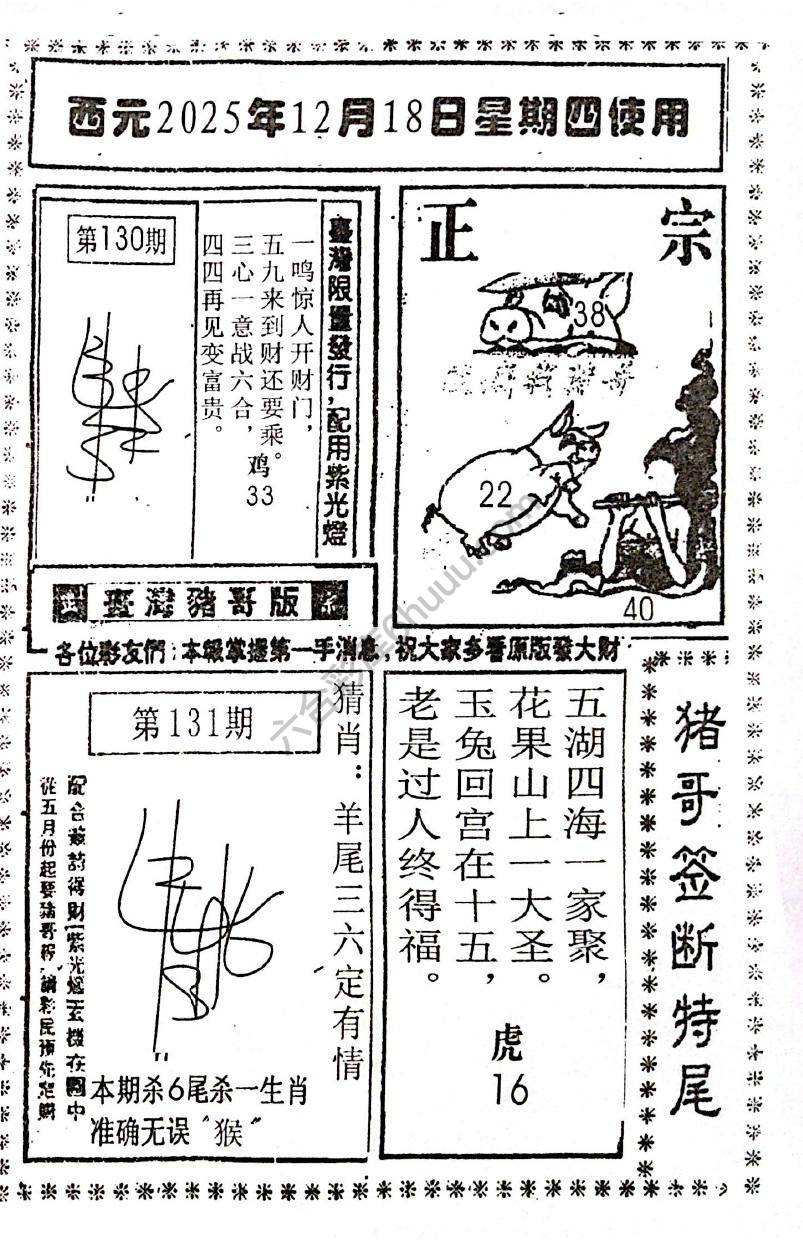 西元2025年12月18日星期四使用
第130期
臺灣限量發行，配用紫光燈
一鸣惊人开财门，
五九来到财还要乘。
三心一意战六合，
四四再见变富贵。
鸡
33
正宗
38
22
40
臺灣豬哥版
各位彩友們：本報掌握第一手消息，祝大家多看原版發大財
第131期
猜肖：羊尾三六定有情
從五月份起要豬哥報
紫光燈玄機在圖中
本期杀6尾杀一生肖
准确无误“猴”
五湖四海一家聚，
花果山上一大圣。
玉兔回宫在十五，
老是过人终得福。
虎
16
猪哥签断特尾
六合彩库
huuu.com